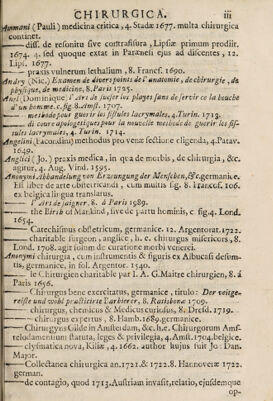 CHIRURGICA. iii
Ammani (Pauli) medicina critica, 4. Stadæ 1677. multa chirurgica
continet.
—— diss. de resonitu sive contrafisura, Lipsiæ primum prodiir.
1674. 4. sed quoque extat in Paræneli ejus ad discentes, 12.
Lips. 1677.
—— praxis vulnerum lethalium, 8. Francf. 1690.
Andry (Nic.) Examen de divers points de l'anatomie, de chirurgie, de
physique, de medicine, 8. Paris 1725.
Anel (Dominique) l'art de sucçer les playes sans se servir ce la bouche
d'un homme. c. fig. 8. Amst. 1707.
—— methode pour guerir les fistules lacrymales, 4. Turin. 1713.
—— discours apologetiques pour la nouvelle methode de guerir les fis-
tules lacrymales, 4. Turin. 1714.
Angelini (Facondini) methodus pro venæ sectione eligenda, 4. Patav.
1649.
Anglici (Jo.) praxis medica, in qua de morbis, de chirurgia, &c.
agitur, 4. Aug. Vind. 1595.
Anonymi Abhandelung von Erzeungung der Menschen, &c. germanice.
Est liber de arte obstetricandi, cum multis fig. 8. Francof. 106.
ex belgica lingua translatus.
—— l'art de saigner, 8. á Paris 1689.
—— the Birth of Mankind, sive de partu hominis, c fig. 4. Lond.
1654.
—— Catechismus obstetricum, germanice. 12. Argentorat. 1722.
—— charitable surgeon, anglice; h. e. chirurgus misericors, 8.
Lond. 1708. agit solum de curatione morbi venerei.
Anonymi chirurgia, cum instrumentis & figuris ex Albucasi desum-
tis, germanice, in fol. Argentor. 1540.
—— le Chirurgien charitable par I. A. G. Maitre chirurgien, 8. á
Paris 1656.
—— Chirurgus bene exercitatus, germanice, titulo: Der veitge-
reiste und wohl practicirte Barbierer, 8. Ratisbonæ 1709.
—— chirurgus, chemicus & Medicus curiosus, 8. Dresd. 1719.
—— chirurgus expertus, 8. Hamb. 1689. germanice.
—— Chirurgyns Gilde in Amsterdam, &c. h.e. Chirurgorum Amste-
relodamentium statuta, leges & privilegia, 4. Amst. 1704. belgice.
—— clysmatica nova, Kiliæ, 4. 1662. author hujus fuit Jo: Dan.
Major.
—— Collectanea chirurgica an. 1721. & 1722. 8. Hannoveræ 1722.
german.
—— de contagio, quod 1713. Austriam invasit, relatio, ejusdemque
op-